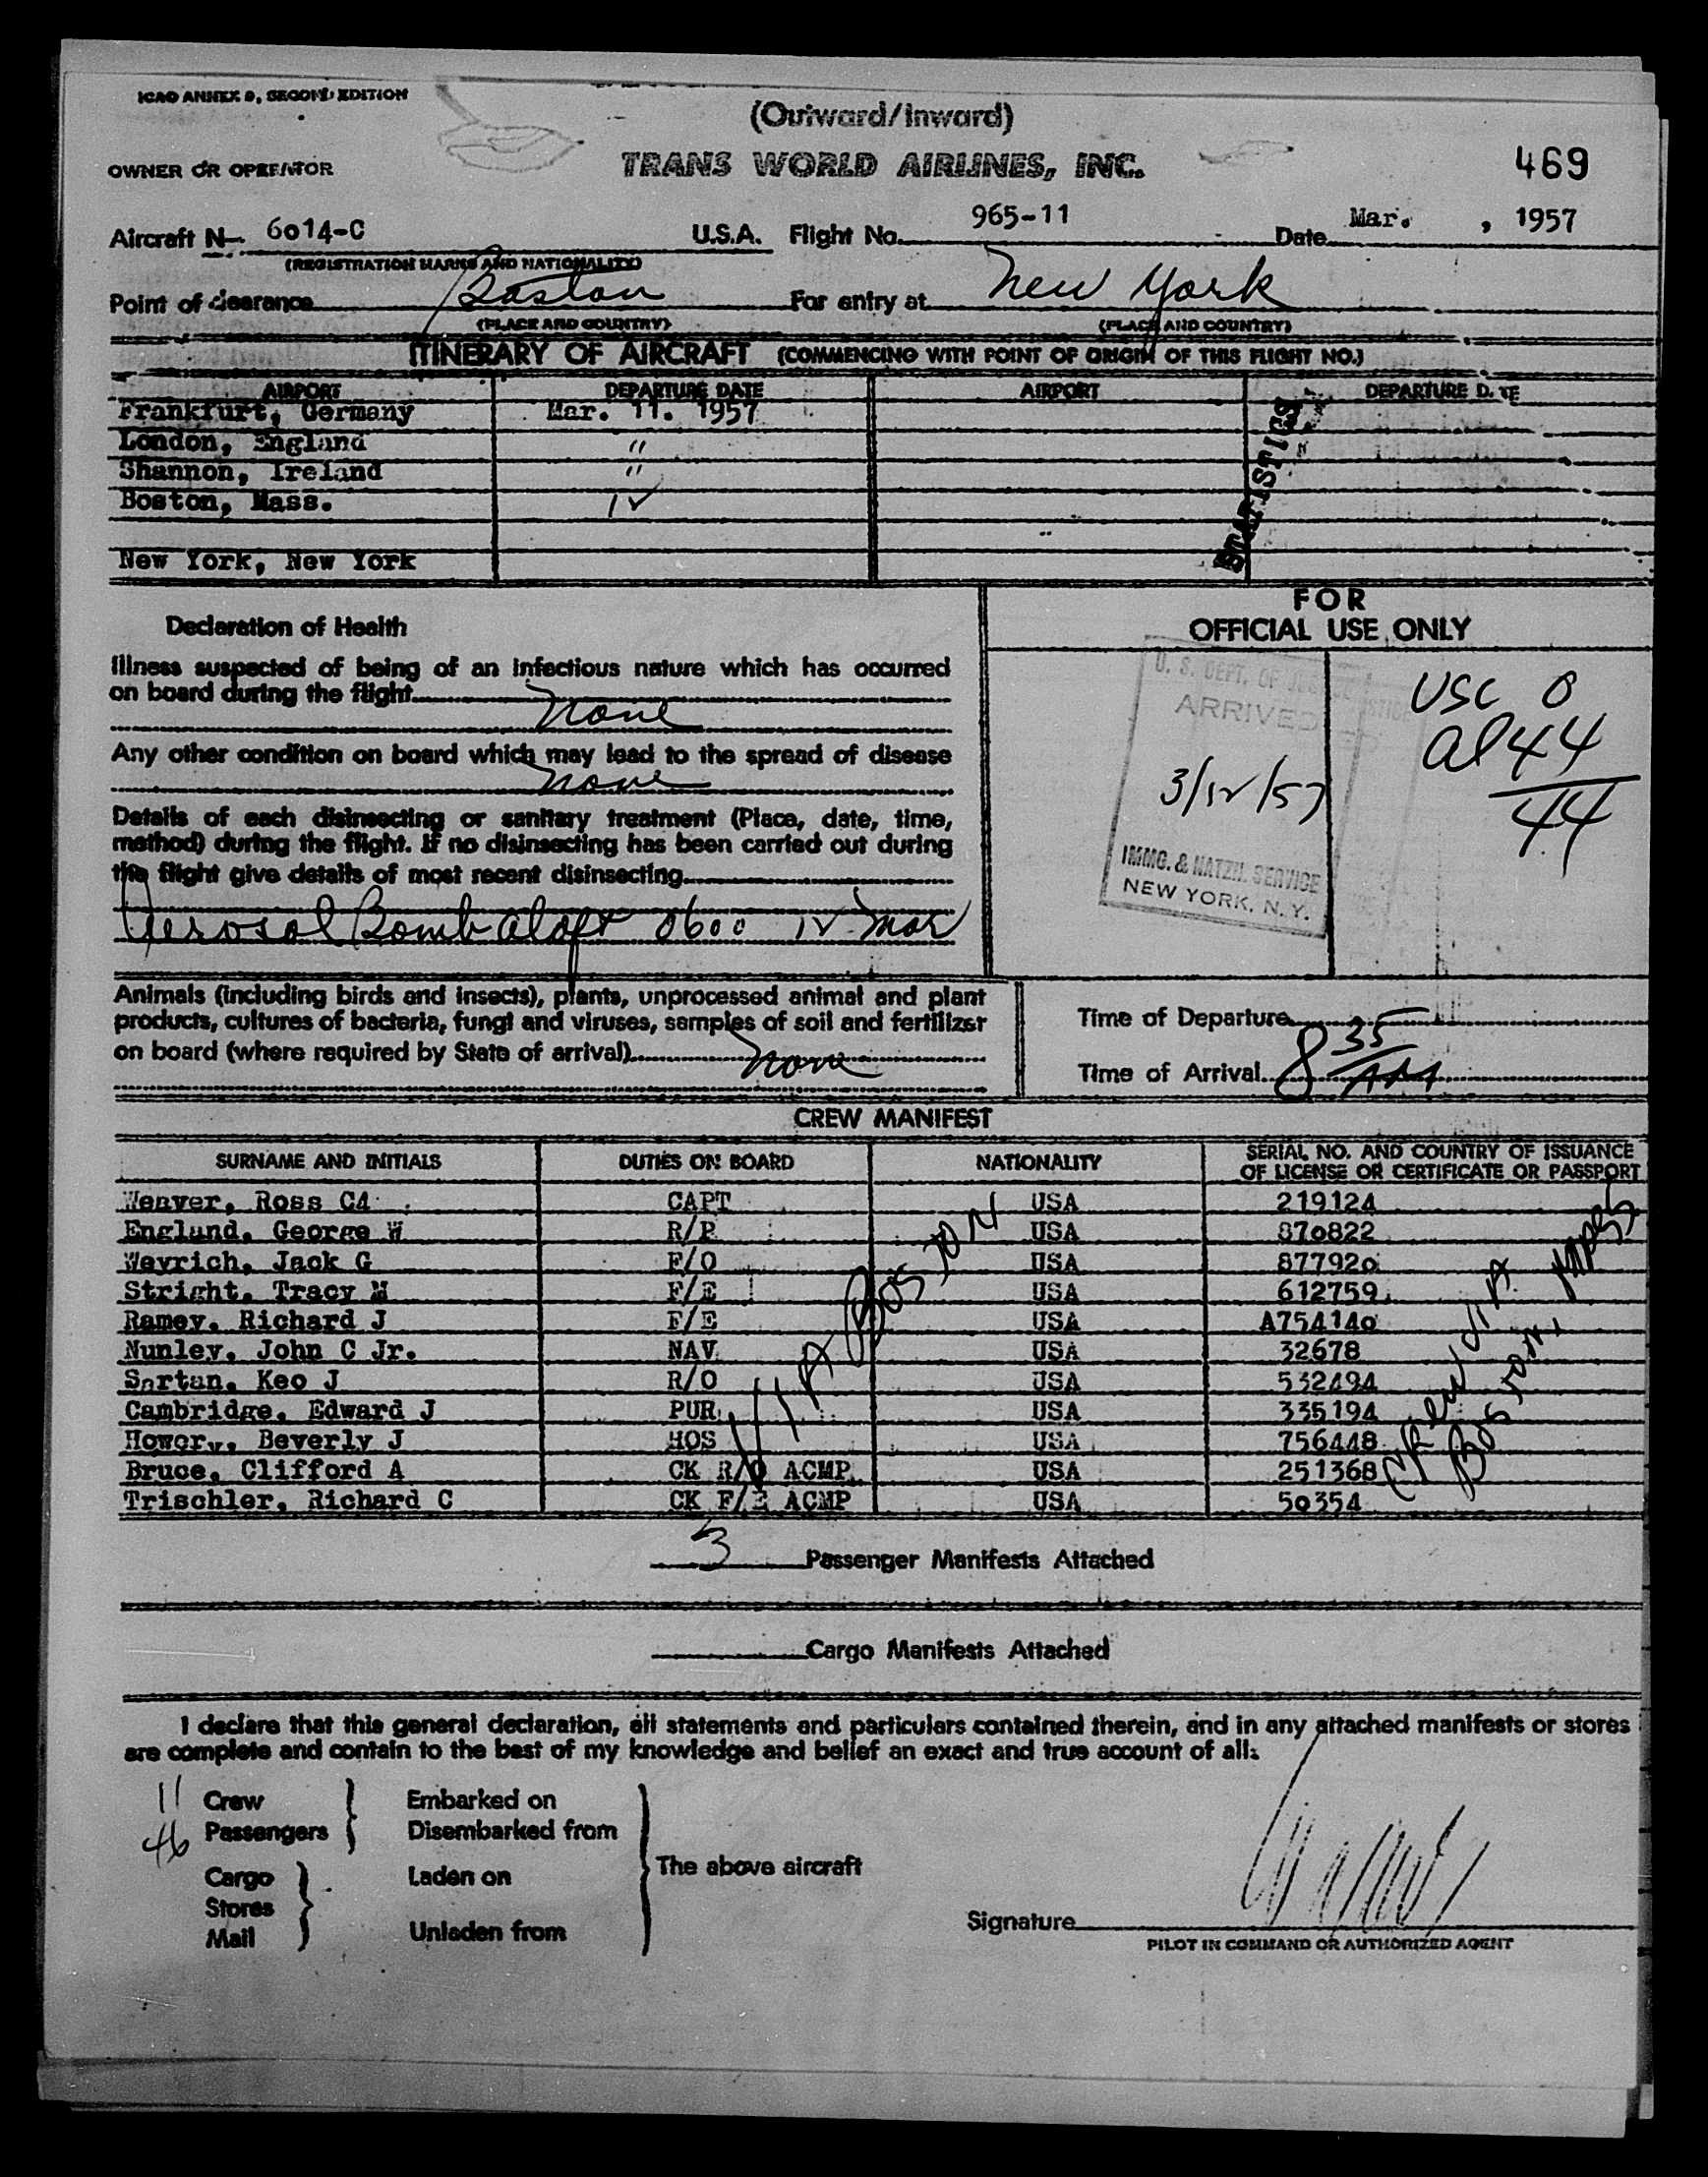 ICAO ANNEX 9, SECOND EDITION
(Outward/Inward)
OWNER OR OPERATOR
TRANS WORLD AIRLINES, INC.
469
Aircraft N- 6014-C U.S.A. Flight No. 965-11 Date Mar. , 1957
(REGISTRATION MARKS AND NATIONALITY)
Point of clearance Boston For entry at New York
(PLACE AND COUNTRY) (PLACE AND COUNTRY)
ITINERARY OF AIRCRAFT (COMMENCING WITH POINT OF ORIGIN OF THIS FLIGHT NO.)
AIRPORT DEPARTURE DATE AIRPORT DEPARTURE DATE
Frankfurt, Germany Mar. 11. 1957
London, England "
Shannon, Ireland "
Boston, Mass. 12
New York, New York
STATISTICS
Declaration of Health
Illness suspected of being of an infectious nature which has occurred
on board during the flight
None
Any other condition on board which may lead to the spread of disease
None
Details of each disinsecting or sanitary treatment (Place, date, time,
method) during the flight. If no disinsecting has been carried out during
the flight give details of most recent disinsecting
Aerosol Bomb aloft 0600 12 Mar
FOR
OFFICIAL USE ONLY
U. S. DEPT. OF JUSTICE
ARRIVED
3/12/57
IMMG. & NATZN. SERVICE
NEW YORK, N. Y.
USC 0
al 44
44
Animals (including birds and insects), plants, unprocessed animal and plant
products, cultures of bacteria, fungi and viruses, samples of soil and fertilizer
on board (where required by State of arrival) None
Time of Departure
Time of Arrival 8 35 AM
CREW MANIFEST
SURNAME AND INITIALS DUTIES ON BOARD NATIONALITY SERIAL NO. AND COUNTRY OF ISSUANCE
OF LICENSE OR CERTIFICATE OR PASSPORT
Weaver, Ross C4 CAPT USA 219124
England, George W R/P USA 870822
Weyrich, Jack G F/O USA 877920
Stright, Tracy M F/E USA 612759
Ramey, Richard J F/E USA A754140
Nunley, John C Jr. NAV USA 32678
Sartan, Keo J R/O USA 532494
Cambridge, Edward J PUR USA 335194
Howery, Beverly J HOS USA 756448
Bruce, Clifford A CK R/O ACMP USA 251368
Trischler, Richard C CK F/E ACMP USA 50354
VIA BOSTON
CREW VIA
BOSTON, MASS
3 Passenger Manifests Attached
Cargo Manifests Attached
I declare that this general declaration, all statements and particulars contained therein, and in any attached manifests or stores
are complete and contain to the best of my knowledge and belief an exact and true account of all:
11 Crew Embarked on
46 Passengers Disembarked from
The above aircraft
Cargo Laden on
Stores
Mail Unladen from
Signature
PILOT IN COMMAND OR AUTHORIZED AGENT